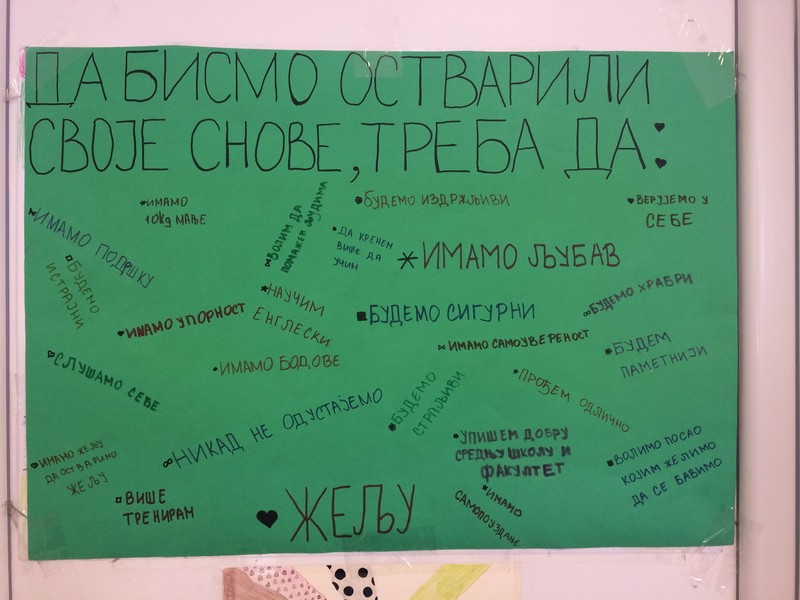 ДА БИСМО ОСТВАРИЛИ
СВОЈЕ СНОВЕ, ТРЕБА ДА:
ИМАМО
10кg МАЊЕ
БУДЕМО ИЗДРЖЉИВИ
ВЕРУЈЕМО У
СЕБЕ
ИМАМО ПОДРШКУ
ВОЛИМ ДА
ПОМАЖЕМ ЉУДИМА
ДА КРЕНЕМ
ВИШЕ ДА
УЧИМ
ИМАМО ЉУБАВ
БУДЕМО
ИСТРАЈНИ
НАУЧИМ
ЕНГЛЕСКИ
БУДЕМО ХРАБРИ
ИМАМО УПОРНОСТ
БУДЕМО СИГУРНИ
ИМАМО САМОУВЕРЕНОСТ
БУДЕМ
ПАМЕТНИЈИ
СЛУШАМО СЕБЕ
ИМАМО БОДОВЕ
БУДЕМО
СТРПЉИВИ
ПРОЂЕМ ОДЛИЧНО
НИКАД НЕ ОДУСТАЈЕМО
УПИШЕМ ДОБРУ
СРЕДЊУ ШКОЛУ И
ФАКУЛТЕТ
ВОЛИМО ПОСАО
КОЈИМ ЖЕЛИМО
ДА СЕ БАВИМО
ИМАМО ЖЕЉУ
ДА ОСТВАРИМО
ЖЕЉУ
ВИШЕ
ТРЕНИРАМ
ЖЕЉУ
ИМАМО
САМОПОУЗДАЊЕ